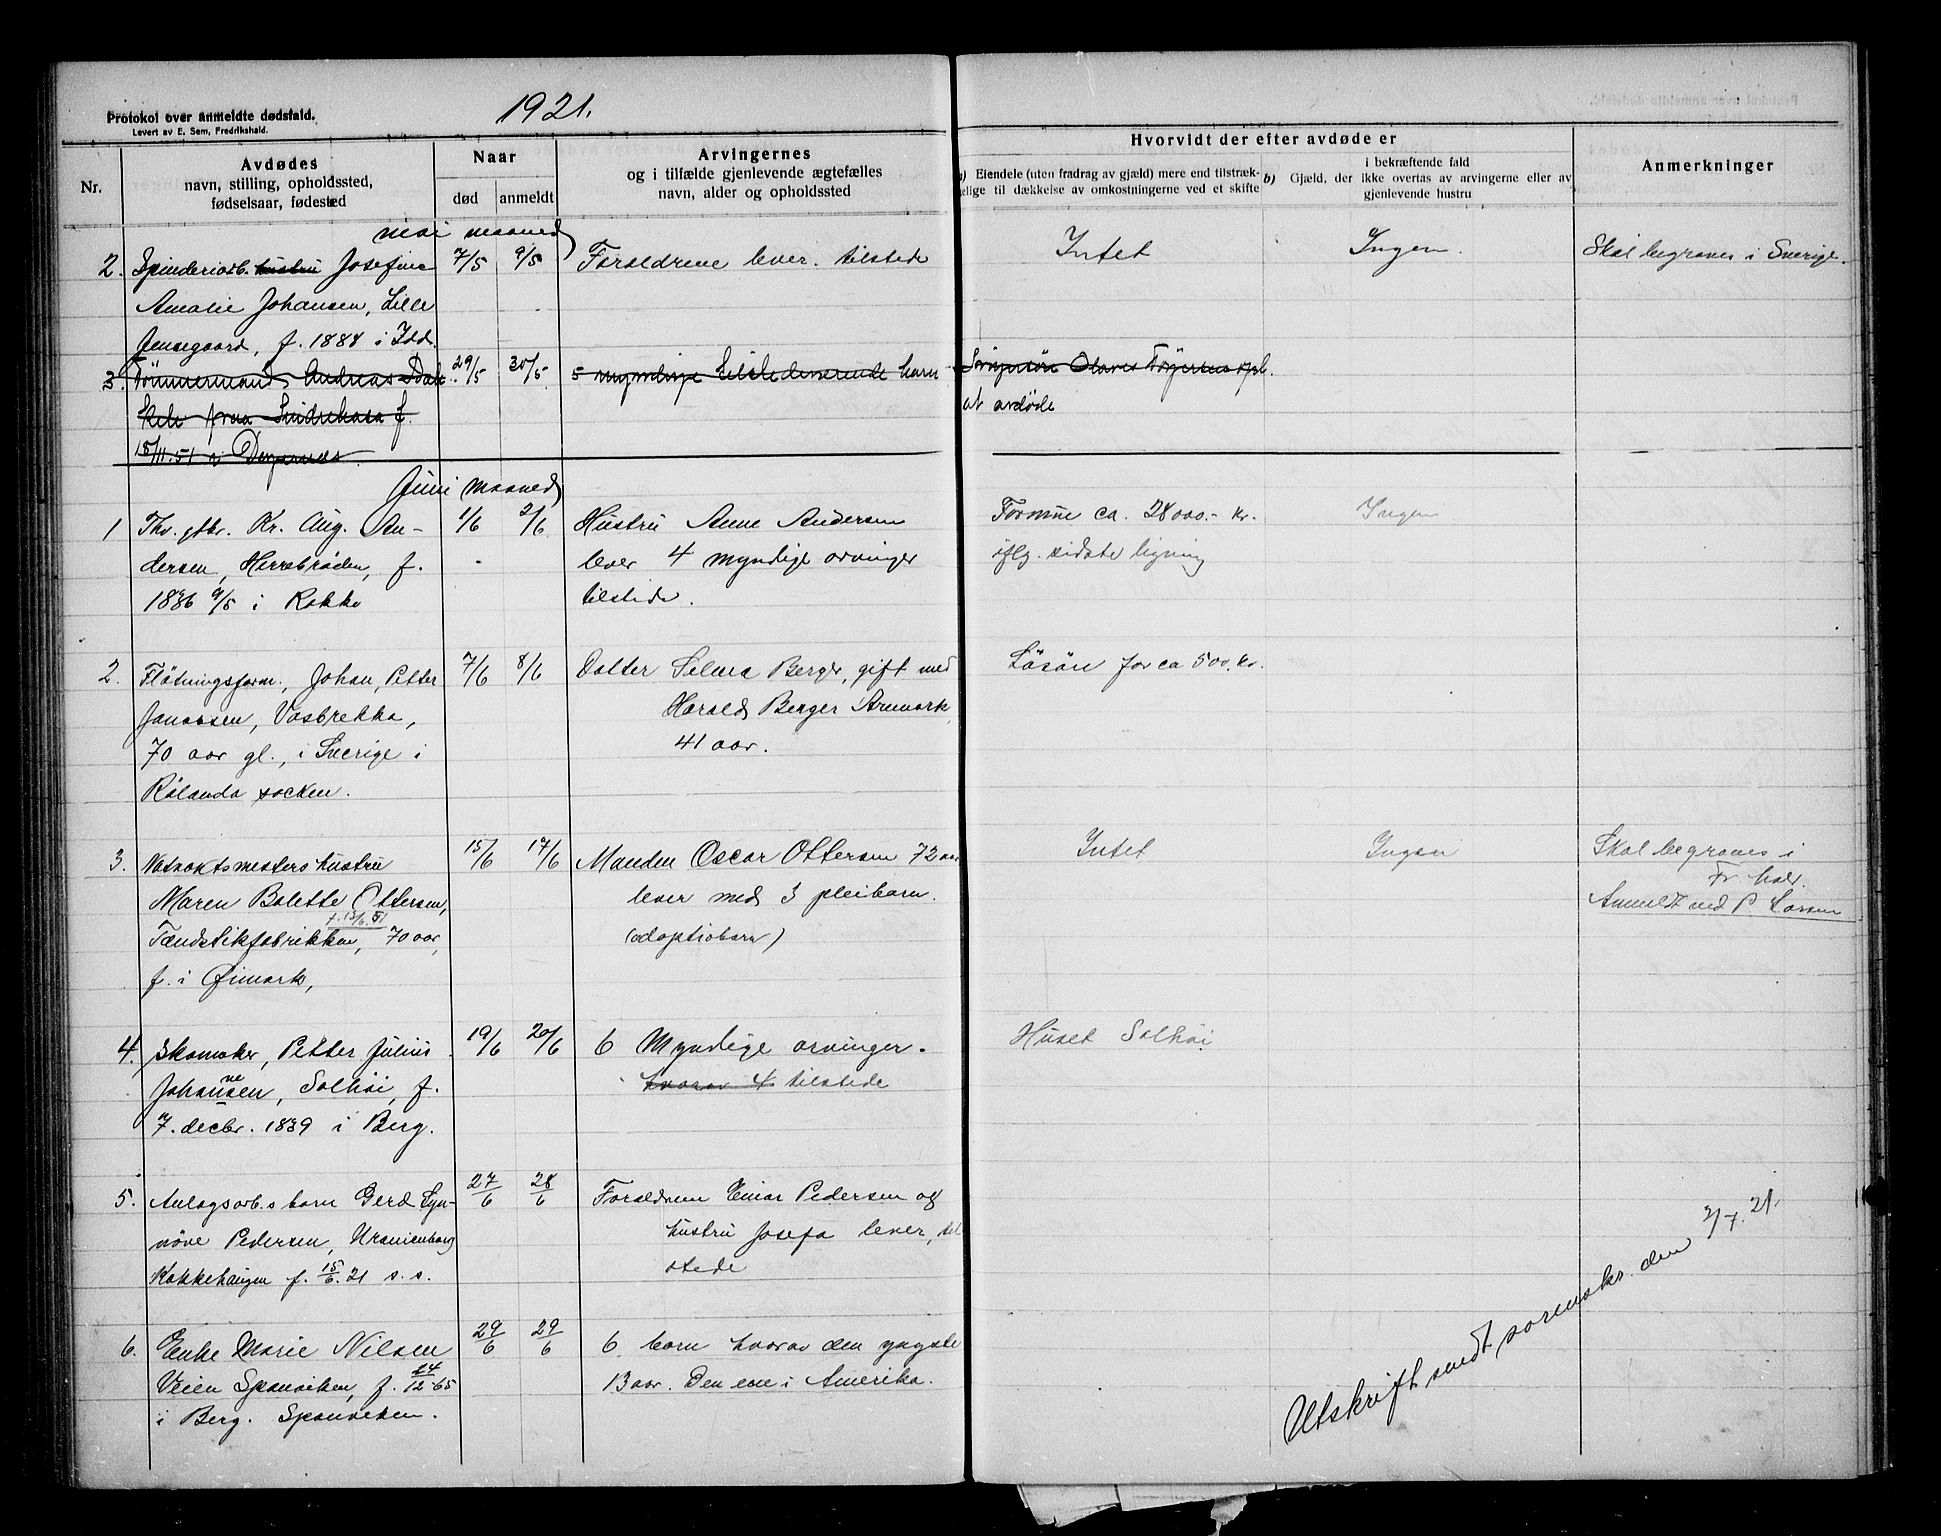 Protokol over anmeldte dødsfald.
Levert av E. Sem, Fredrikshald.
1921.
Nr.
Avdødes
navn, stilling, opholdssted,
fødselsaar, fødested
Naar
død
anmeldt
Arvingernes
og i tilfælde gjenlevende ægtefælles
navn, alder og opholdssted
Hvorvidt der efter avdøde er
a) Eiendele (uten fradrag av gjæld) mere end tilstræk-
kelige til dækkelse av omkostningerne ved et skifte
b)
i bekræftende fald
Gjæld, der ikke overtas av arvingerne eller av
gjenlevende hustru
Anmerkninger
mai maaned
2. Spinderiarb. hustru Josefine
Amalie Johansen, Lille
f. 1888 i Idd.
7/5 9/5
Forældrene lever. tilstede
Intet
Ingen.
Skal begraves i Sverige.
3. Tømmermand Andreas
fraa f.
18/11.51 i
29/5 30/5
5 myndige tilstedeværende barn
Svigersøn Olaves opl.
at avdøde
Juni maaned
1 Thv. gbr. Kr. Aug. An-
dersen, Herrebrøden, f.
1836 9/5 i Rokke
1/6 2/6
Hustru Anne Andersen
lever 4 myndige arvinger
tilstede.
Formue ca. 28000.- kr.
iflg. sidste ligning
Ingen
2. Fløtningsform., Johan, Petter
Janossen, Vasbrekke,
70 aar gl., i Sverige i
Rølanda socken.
7/6 8/6
Datter Selma Berger, gift med
Harald Berger Aremark,
41 aar.
Løsøre for ca 500. kr.
3. Natvaktsmesters hustru
Maren Bolette Ottersen,
f. 13/6.51
Tændstikfabrikken, 70 aar,
f. i Øimark,
15/6 17/6
Manden Oscar Ottersen 72 aar
lever med 3 pleibarn.
(adoptivbarn)
Intet
Ingen
Skal begraves i
Fr. hald.
Anmeldt ved P. Larsen
4. Skomaker, Petter Julius
Johannesen, Solhøi, f.
7. decbr. 1839 i Berg.
19/6 20/6
6 Myndige arvinger.
hvorav 4 tilstede
Huset Solhøi
5. Anlægsarb.s barn Gerd Syn-
nøve Pedersen, Uranienborg
Kokkehaugen f. 15/6.21 s.s.
27/6 28/6
Forældrene Einar Pedersen og
hustru Josefa lever, til
stede
6. Enke Marie Nilsen
Veien Sponviken, f. 24/12-65
i Berg. Sponviken.
29/6 29/6
6 barn hvorav den yngste
13 aar. Den ene i Amerika.
Utskrift sendt sorenskr. den 2/7.21.